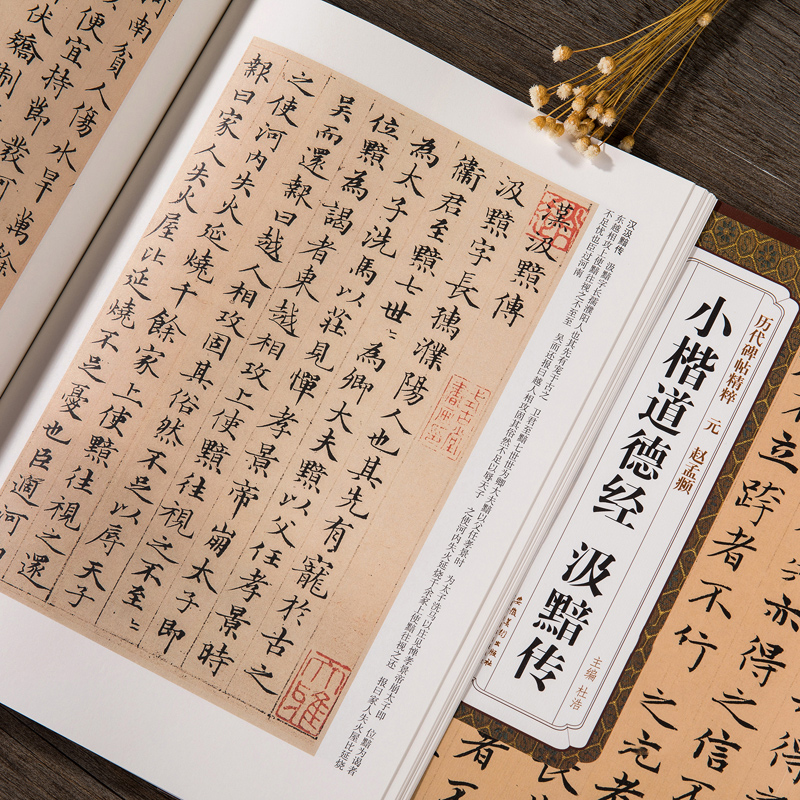 漢汲黯傳
汲黯字長孺濮陽人也其先有寵於古之
衞君至黯七世〻為卿大夫黯以父任孝景時
為太子洗馬以莊見憚孝景帝崩太子即
位黯為謁者東越相攻上使黯往視之不至〻
吳而還報曰越人相攻固其俗然不足以辱天子
之使河内失火延燒千餘家上使黯往視之還
報曰家人失火屋比延燒不足憂也臣過河
河南貧人傷水旱萬餘
便宜持節發河
伏矯制
汉汲黯传 汲黯字长孺濮阳人也其先有宠于古之 卫君至黯七世世为卿大夫黯以父任孝景时 为太子洗马以庄见惮孝景帝崩太子即 位黯为谒者
东越相攻上使黯往视之不至至 吴而还报曰越人相攻固其俗然不足以辱天子 之使河内失火延烧千余家上使黯往视之还 报曰家人失火屋比延烧
不足忧也臣过河南
历代碑帖精粹 元 赵孟頫
小楷道德经 汲黯传
主编 杜浩
安徽美术出版社
立跨者不行
亦得之信不